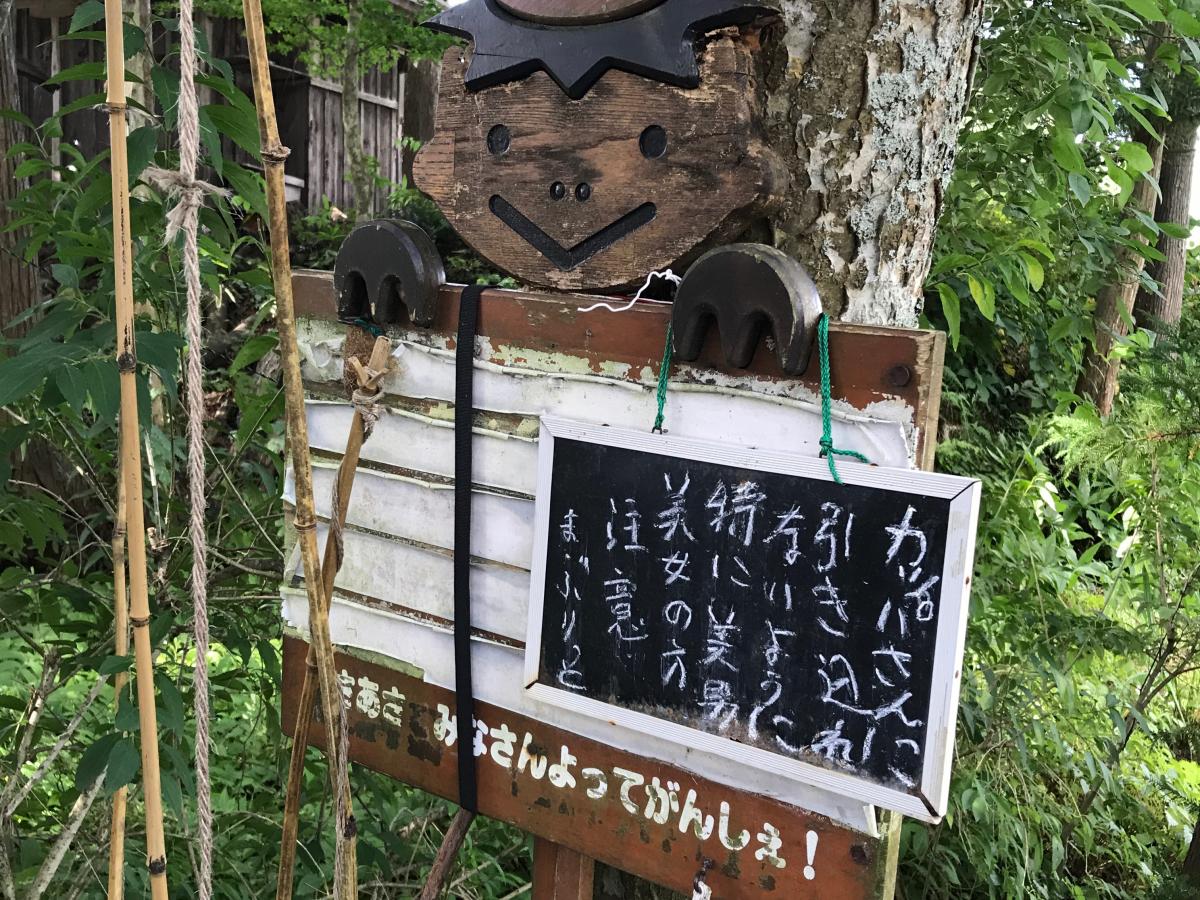 さんに
引き込れ
ないように
特に美男
美女の方
注意
まぶりっと
まあさ みなさんよってがんしぇ！